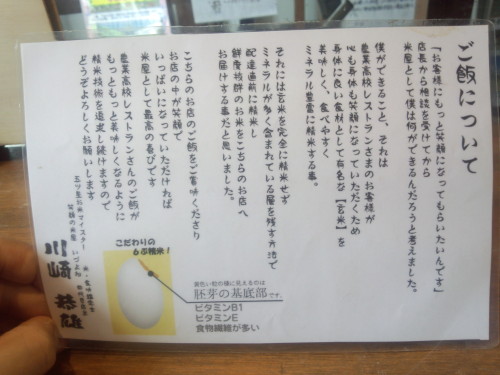 ご飯について
「お客様にもっと笑顔になってもらいたいんです」
店長から相談を受けてから
米屋として僕は何ができるんだろうと考えました。
僕ができること、それは
産業高校レストランさまのお客様が
心も身体も笑顔になっていただくため
身体に良い食材として有名な【玄米】を
美味しく、食べやすく
ミネラル豊富に精米する事。
それには玄米を完全に精米せず
ミネラルが多く含まれている層を残す方法で
配達直前に精米し
鮮度抜群のお米をこちらのお店へ
お届けする事だと思いました。
こちらのお店のご飯をご賞味くださり
お店の中が笑顔で
いっぱいになっていただければ
米屋として最高の喜びです
産業高校レストランさんのご飯が
もっともっと美味しくなるように
精米技術を追求し続けますので
どうぞよろしくお願いします
五ツ星お米マイスター
笑顔の米屋 いづよね
川崎 恭雄
こだわりの
6ぶ精米!
黄色い粒の様に見えるのは
胚芽の基底部です。
ビタミンB1
ビタミンE
食物繊維が多い